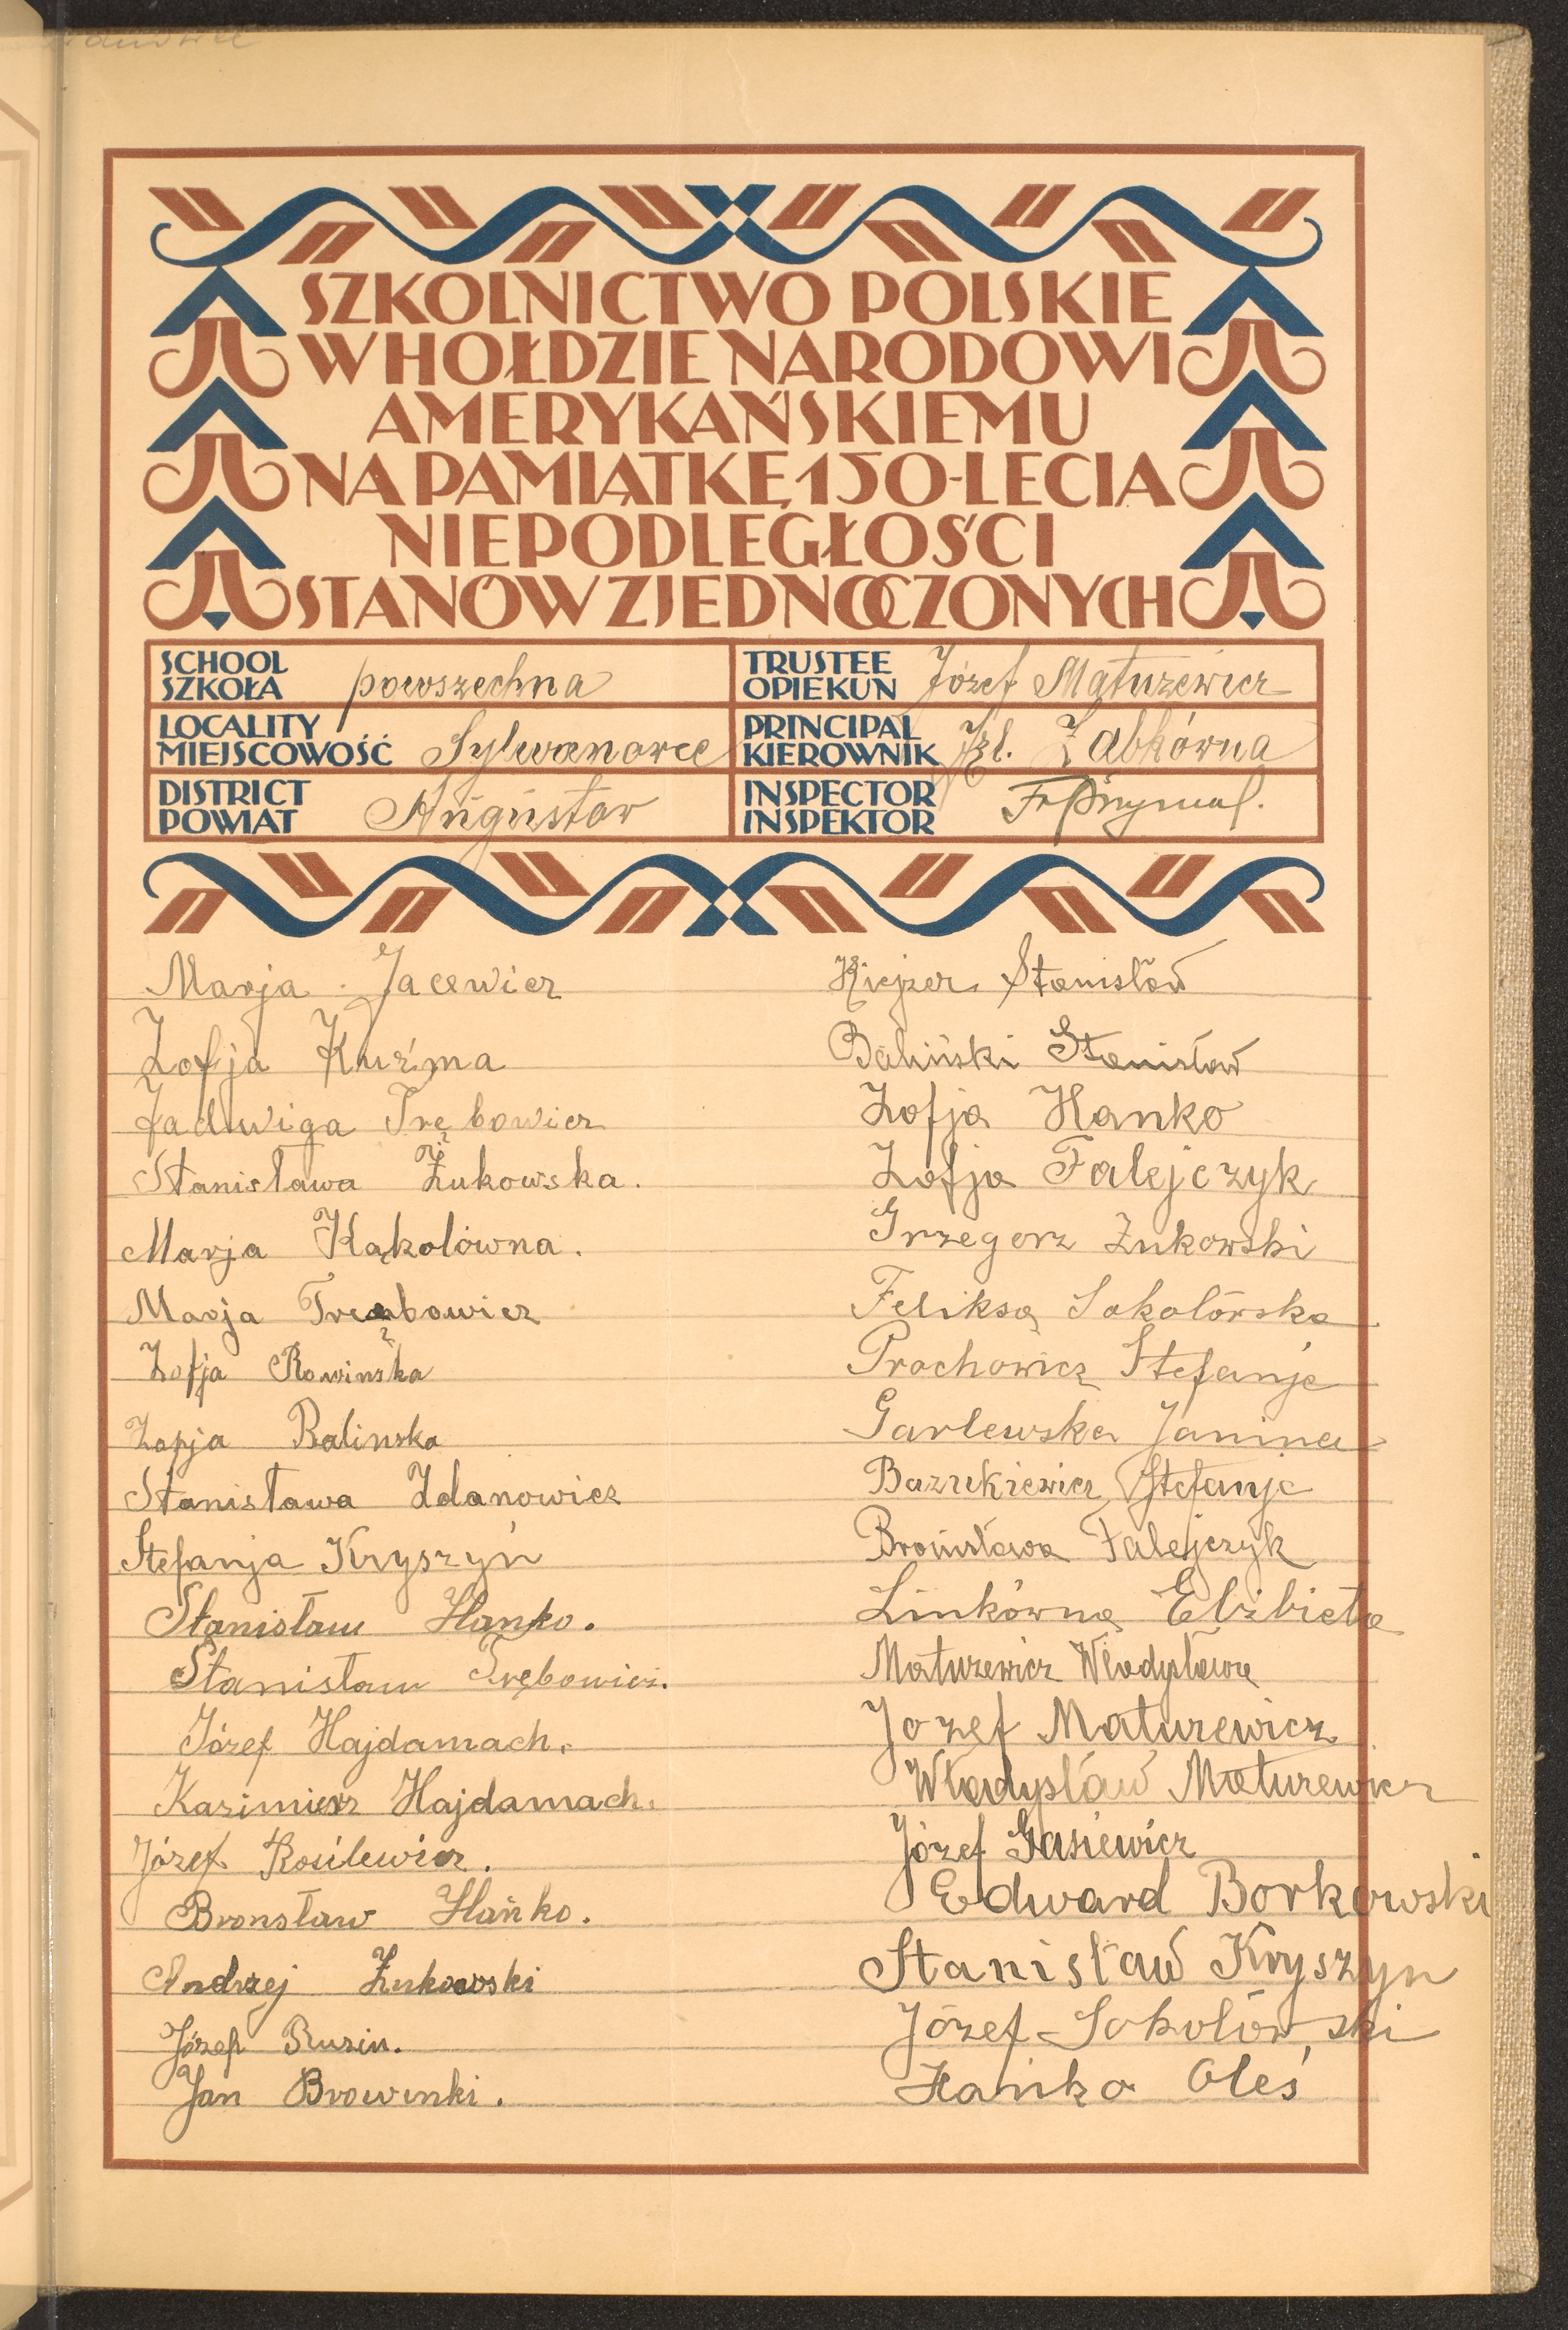 SZKOLNICTWO POLSKIE
W HOŁDZIE NARODOWI
AMERYKAŃSKIEMU
NA PAMIĄTKĘ 150-LECIA
NIEPODLEGŁOŚCI
STANÓW ZJEDNOCZONYCH
SCHOOL
SZKOŁA powszechna
TRUSTEE
OPIEKUN Józef Matuzewicz
LOCALITY
MIEJSCOWOŚĆ Sylwanowce
PRINCIPAL
KIEROWNIK Żabkówna
DISTRICT
POWIAT Augustów
INSPECTOR
INSPEKTOR
Marja Jacewicz
Zofja Kuźma
Jadwiga Trębowicz
Stanisława Żukowska.
Marja Kąkolówna.
Marja Trębowicz
Zofja Rowinska
Zofja Balinska
Stanisława Zdanowicz
Stefanja Kryszyń
Stanisław Hanko.
Stanisław Trębowicz.
Józef Hajdamach.
Kazimierz Hajdamach.
Józef Kosilewicz.
Bronsław Hańko.
Andrzej Żukowski
Józef Ruzin.
Jan Browinki.
Kiejzer Stanisław
Baliński Stanisław
Zofja Hanko
Zofja Falejczyk
Grzegorz Żukowski
Feliksa Sokolórska
Prochowicz Stefanje
Garlewska Janina
Bazukiewicz Stefanje
Bronisława Falejczyk
Linkówna Elżbieta
Matuzewicz Władysława
Jozef Maturewicz
Władysław Maturewicz
Józef Gasiewicz
Edward Borkowski
Stanisław Kryszyn
Józef Sokolówski
Hańko Oleś